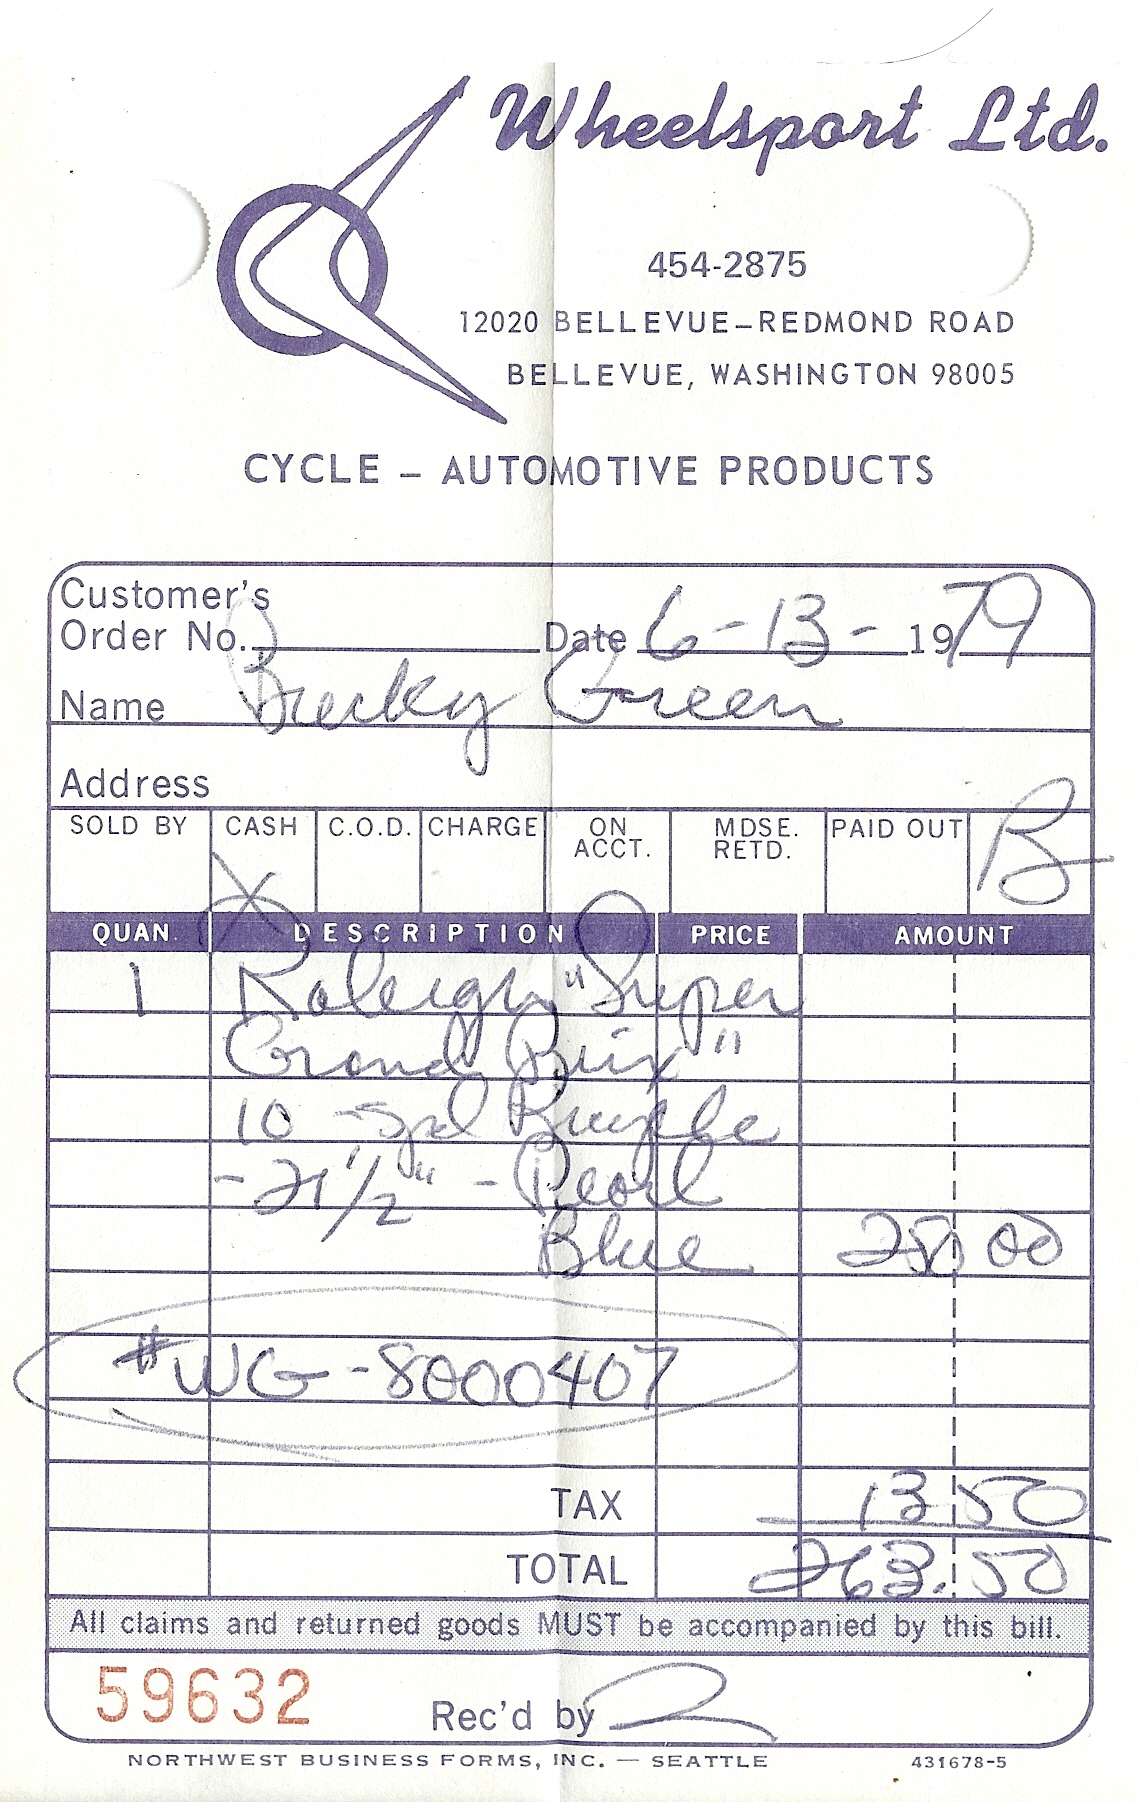 Wheelsport Ltd.
454-2875
12020 BELLEVUE–REDMOND ROAD
BELLEVUE, WASHINGTON 98005
CYCLE – AUTOMOTIVE PRODUCTS
Customer's
Order No. Date 6-13-1979
Name Becky Green
Address
SOLD BY CASH C.O.D. CHARGE ON ACCT. MDSE. RETD. PAID OUT B
X
QUAN. DESCRIPTION PRICE AMOUNT
1 Raleigh "Super
Grand Prix"
10-spd Bicycle
-21 1/2" - Pearl
Blue 250 00
#WG-8000407
TAX 13 50
TOTAL 263.50
All claims and returned goods MUST be accompanied by this bill.
59632 Rec'd by
NORTHWEST BUSINESS FORMS, INC. — SEATTLE 431678-5